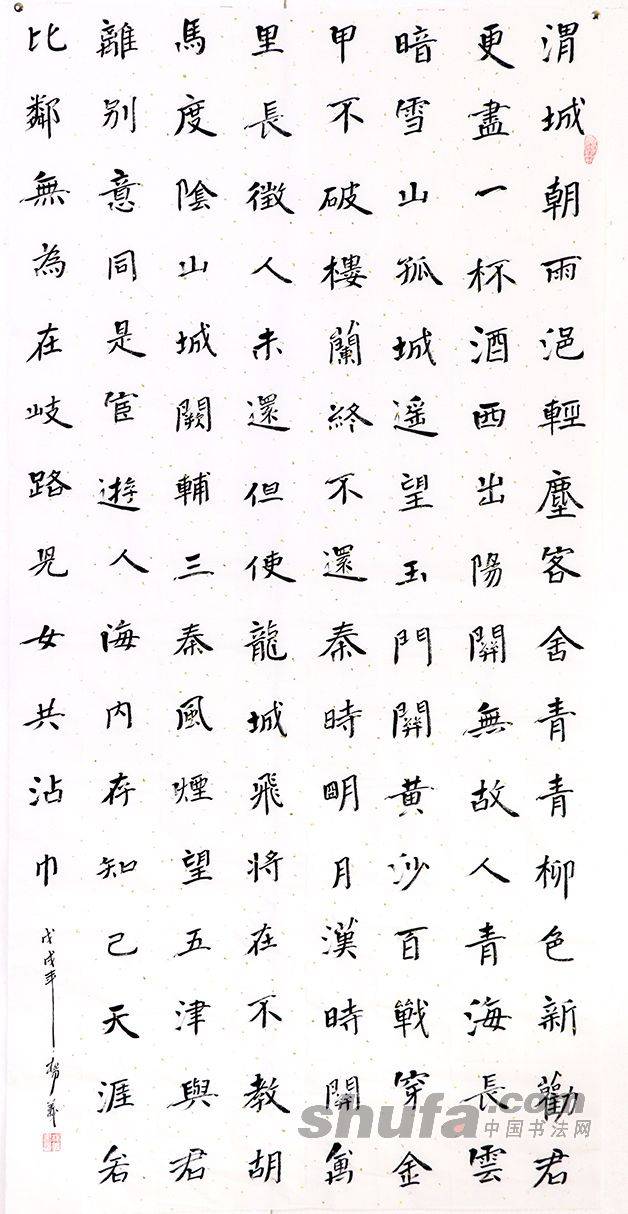 渭城朝雨浥輕塵客舍青青柳色新勸君
更盡一杯酒西出陽關無故人青海長雲
暗雪山孤城遥望玉門關黄沙百戰穿金
甲不破樓蘭終不還秦時眀月漢時關萬
里長徵人未還但使龍城飛将在不教胡
馬度陰山城闕輔三秦風煙望五津與君
離别意同是宦遊人海内存知己天涯若
比鄰無為在岐路兒女共沾巾
戊戌年
shufa.com
中国书法网